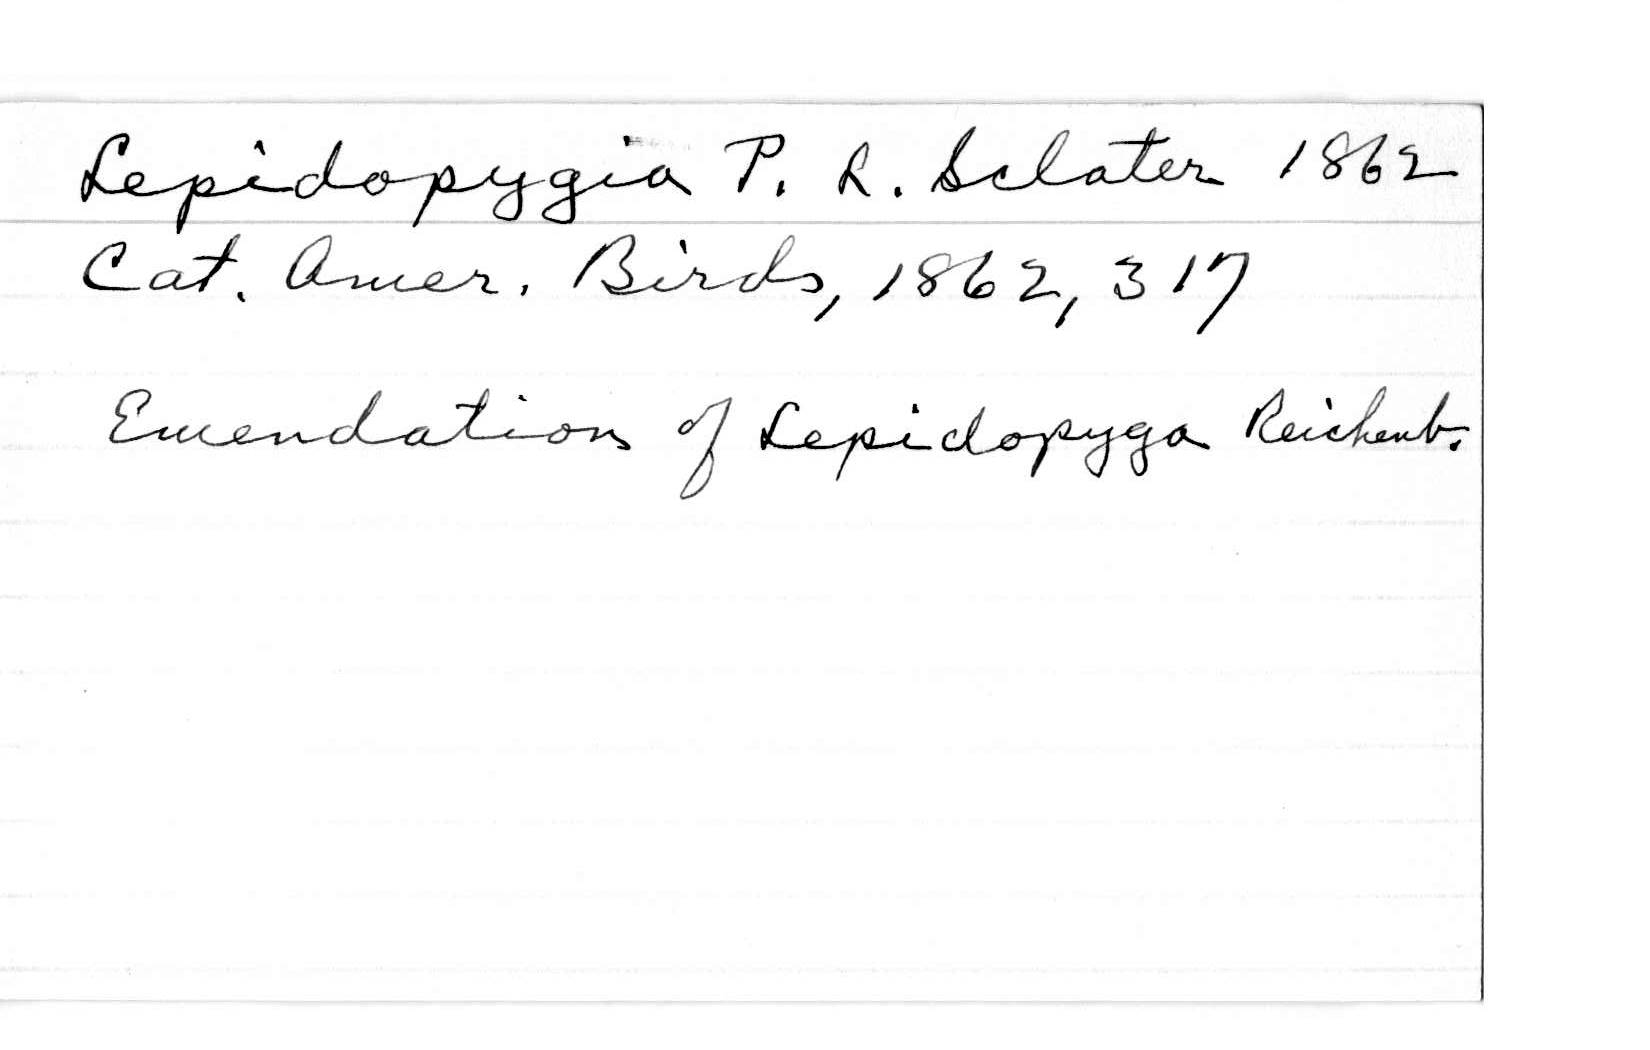 Lepidopygia P. L. Sclater 1862
Cat. Amer. Birds, 1862, 317
Emendation of Lepidopyga Reichenb.